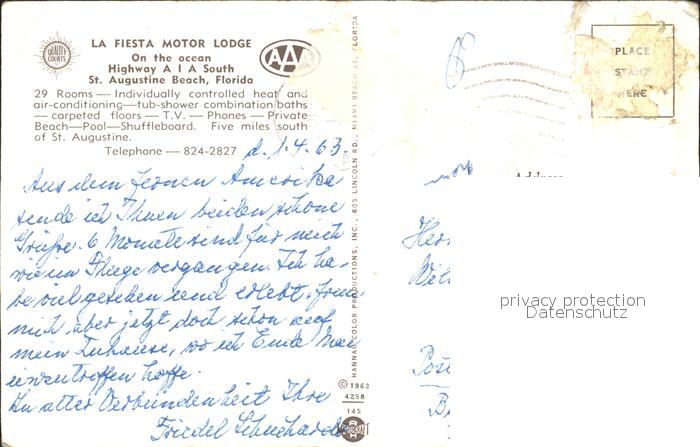 LA FIESTA MOTOR LODGE
On the ocean
Highway A I A South
St. Augustine Beach, Florida
QUALITY COURTS
AAA
29 Rooms — Individually controlled heat and
air-conditioning—tub-shower combination baths
— carpeted floors — T.V. — Phones — Private
Beach—Pool—Shuffleboard. Five miles south
of St. Augustine.
Telephone — 824-2827
d. 1.4.63.
Aus dem fernen Amerika
sende ich Ihnen beiden schöne
Grüße. 6 Monate sind für mich
wie im Fluge vergangen. Ich ha-
be viel gesehen und erlebt. Freue
mich aber jetzt doch schon auf
mein Zuhause, wo ich Ende Mai
einzutreffen hoffe.
In alter Verbundenheit Ihre
Friedel
HANNAU COLOR PRODUCTIONS, INC., 605 LINCOLN RD., MIAMI BEACH 39, FLORIDA
© 1962
4258
145
PLACE
STAMP
HERE
Address
privacy protection
Datenschutz